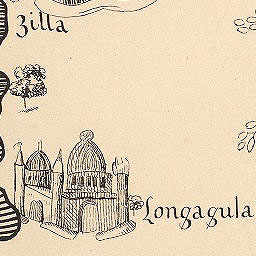 Zilla
Longagula